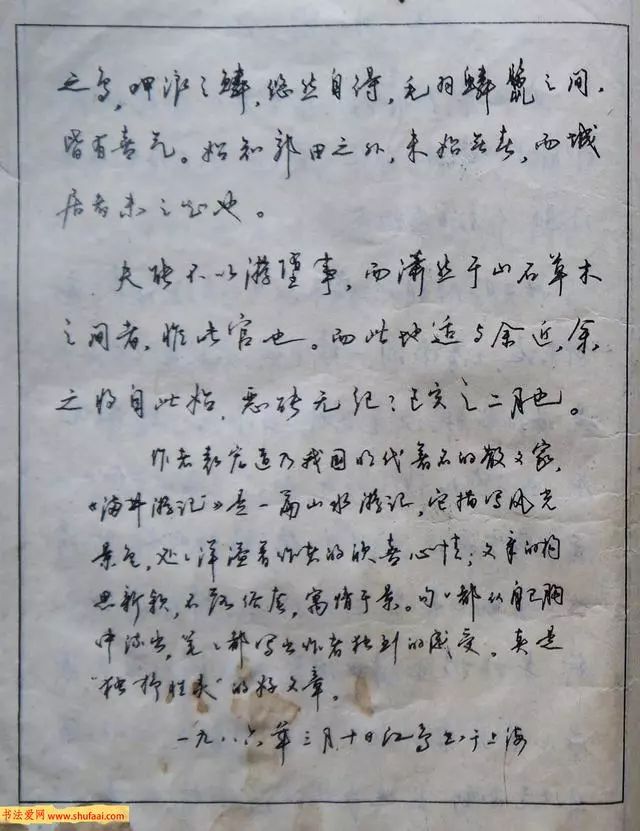 之鸟，呷浪之鳞，悠然自得，毛羽鳞鬣之间，
皆有喜气。始知郊田之外，未始无春，而城
居者未之知也。
夫能不以游堕事，而潇然于山石草木
之间者，惟此官也。而此地适与余近，余
之将自此始，恶能无纪？己亥之二月也。
作者袁宏道乃我国明代著名的散文家，
《满井游记》是一篇山水游记，它描写风光
景色，处处洋溢着作者的欣喜心情；文章的构
思新颖，不落俗套，寓情于景。句句都从自己胸
中流出，笔笔都写出作者独到的感受。真是
“独抒性灵”的好文章。
一九八六年三月十日江鸟书于上海
书法爱网
www.shufaai.com